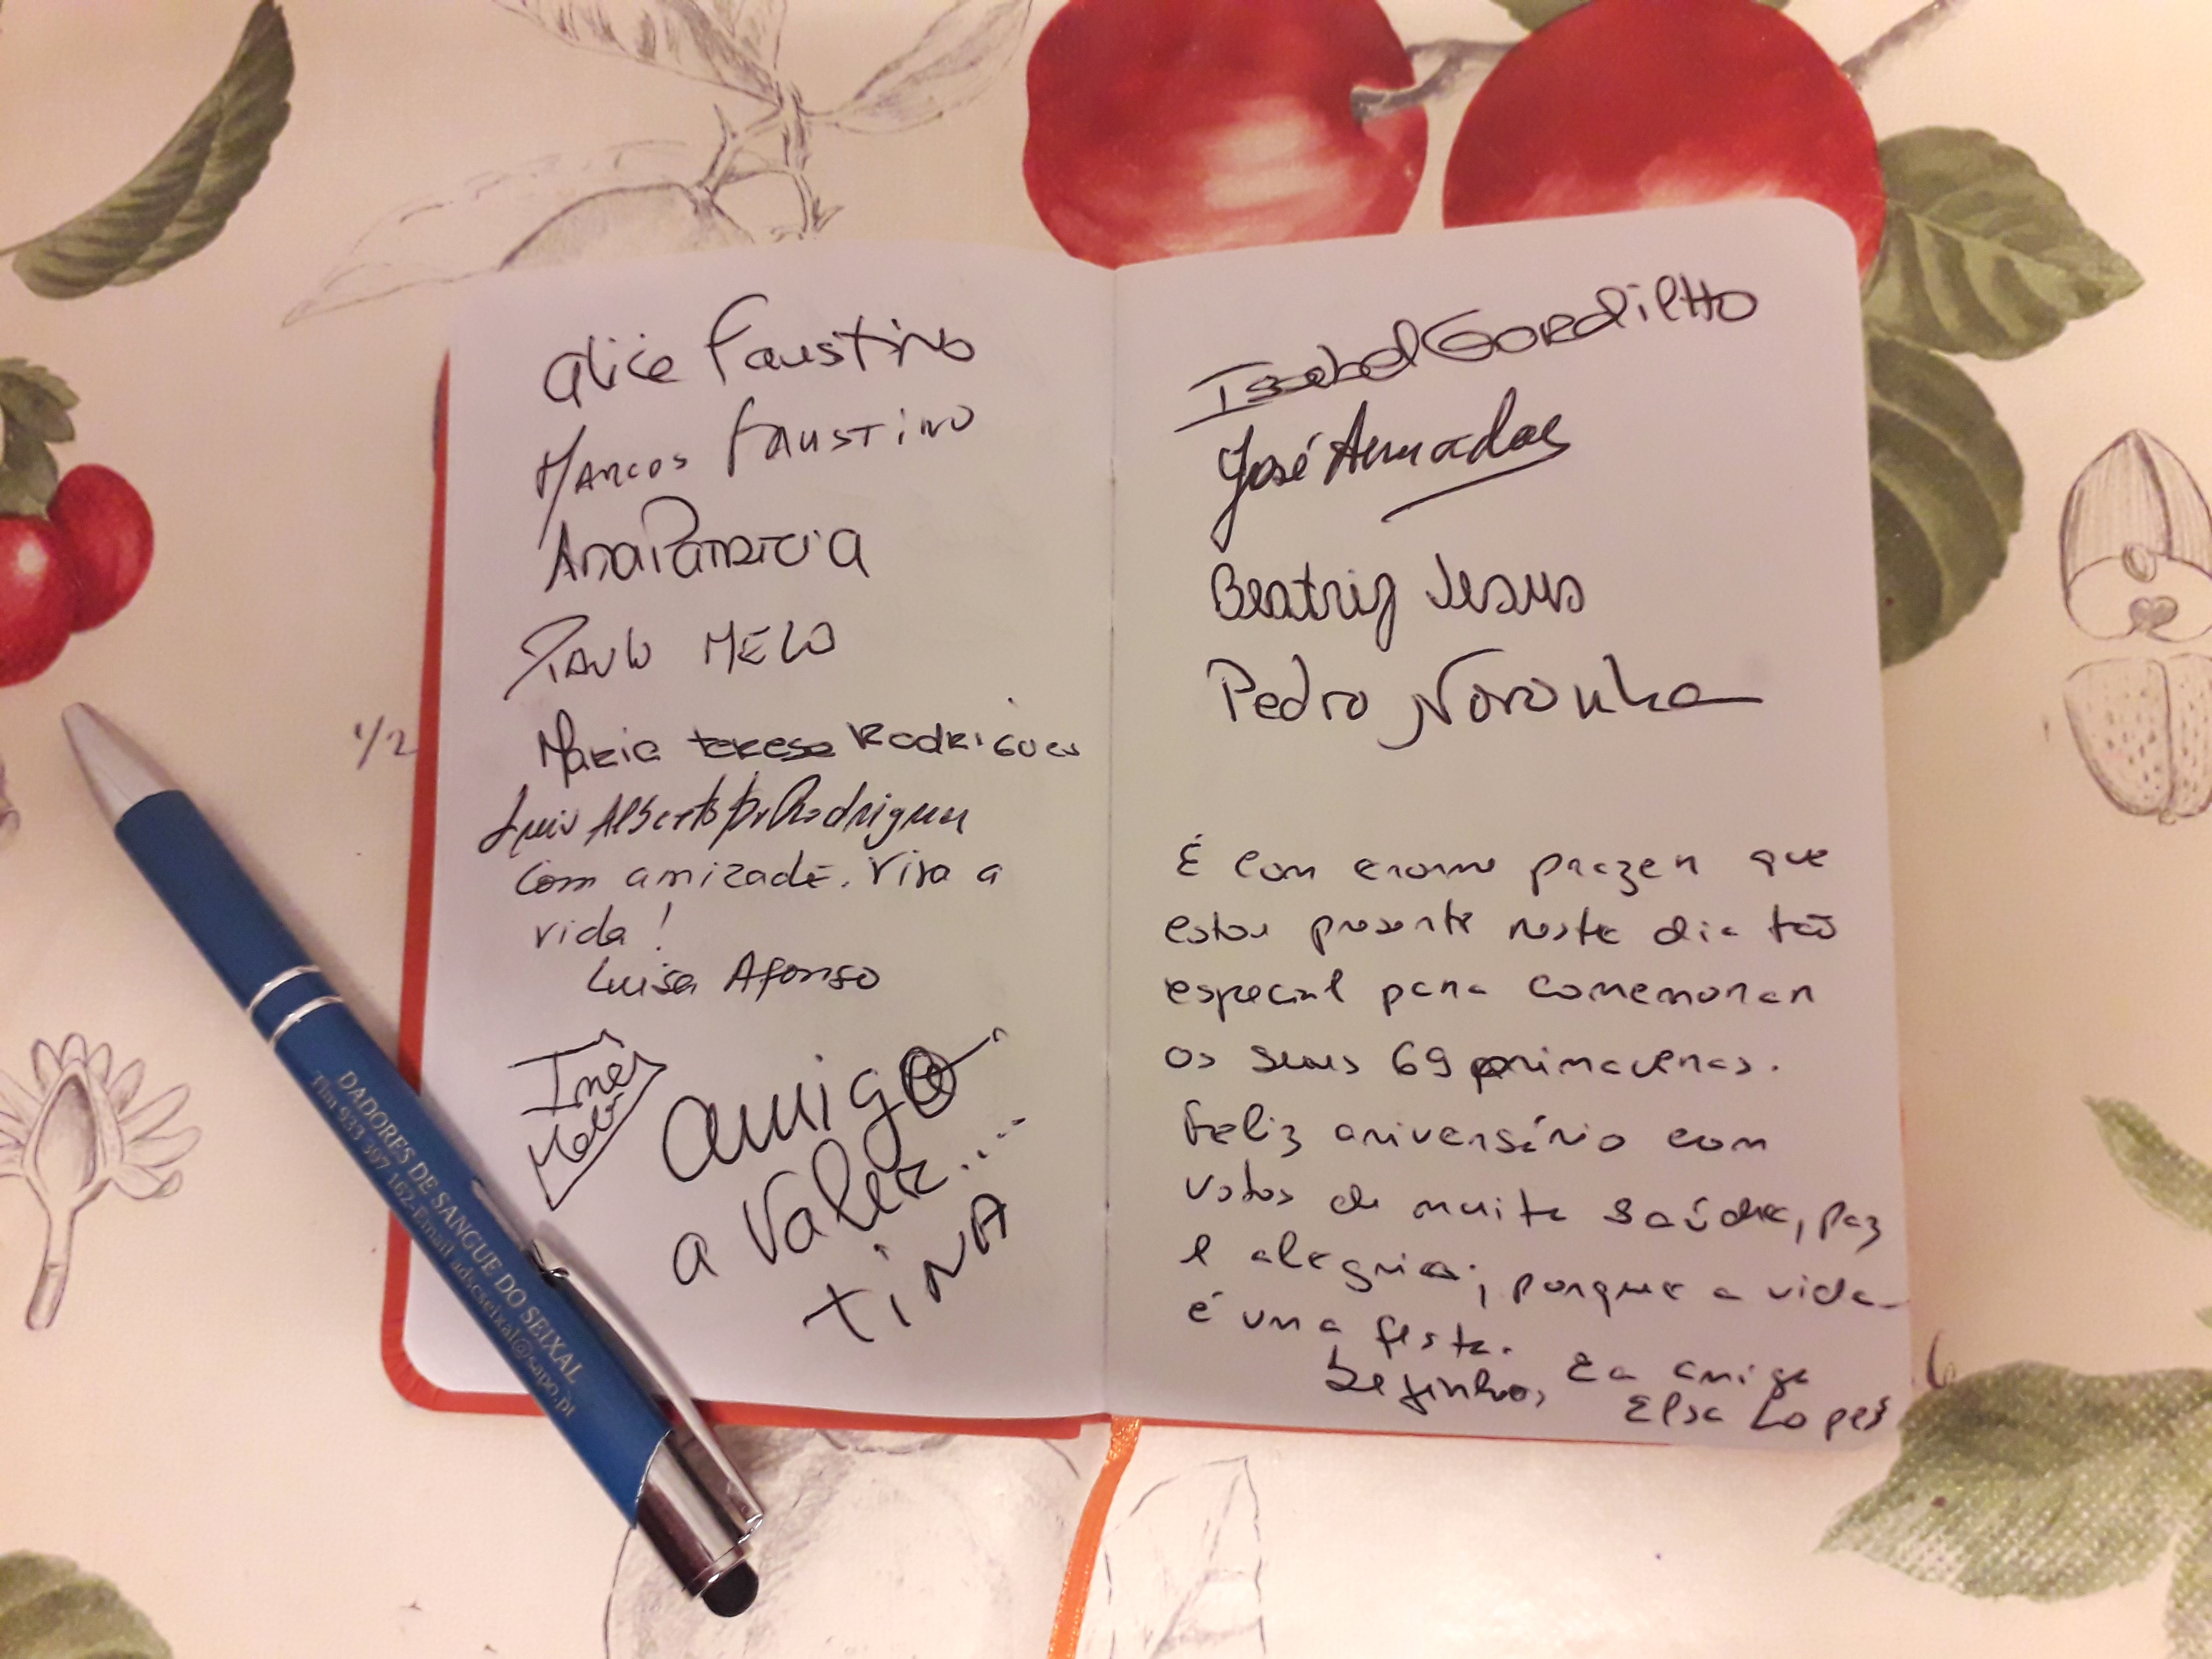 Alice Faustino
Marcos Faustino
Ana Patricia
Paulo Melo
Maria teresa Rodrigues
Luis Alberto Rodrigues
Com amizade. Viva a
vida!
Luisa Afonso
Inês
amigo
a Valer....
TINA
Isabel Gordilho
José
Beatriz Jesus
Pedro Noronha
É com enorme prazer que
estou presente neste dia tão
especial para comemorar
os seus 69 primaveras.
Feliz aniversário com
votos de muita saúde, paz
e alegria; porque a vida
é uma festa.
Bejinhos, Ea amiga
Elsa Lopes
1/2
DADORES DE SANGUE DO SEIXAL
Tlm 933 397 162-Email adscseixal@sapo.pt